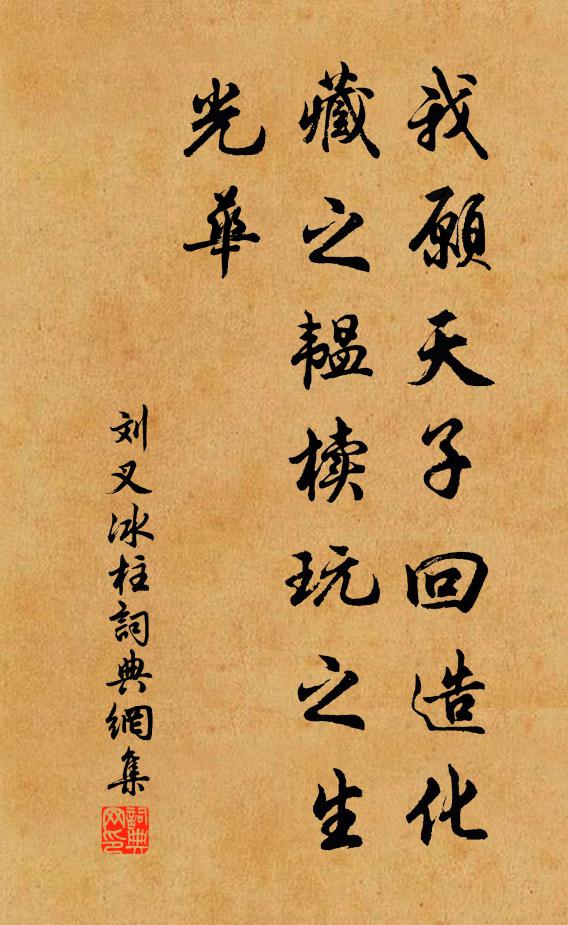 我願天子回造化
藏之韞椟玩之生
光華
刘叉冰柱詞典網集
詞典
网印